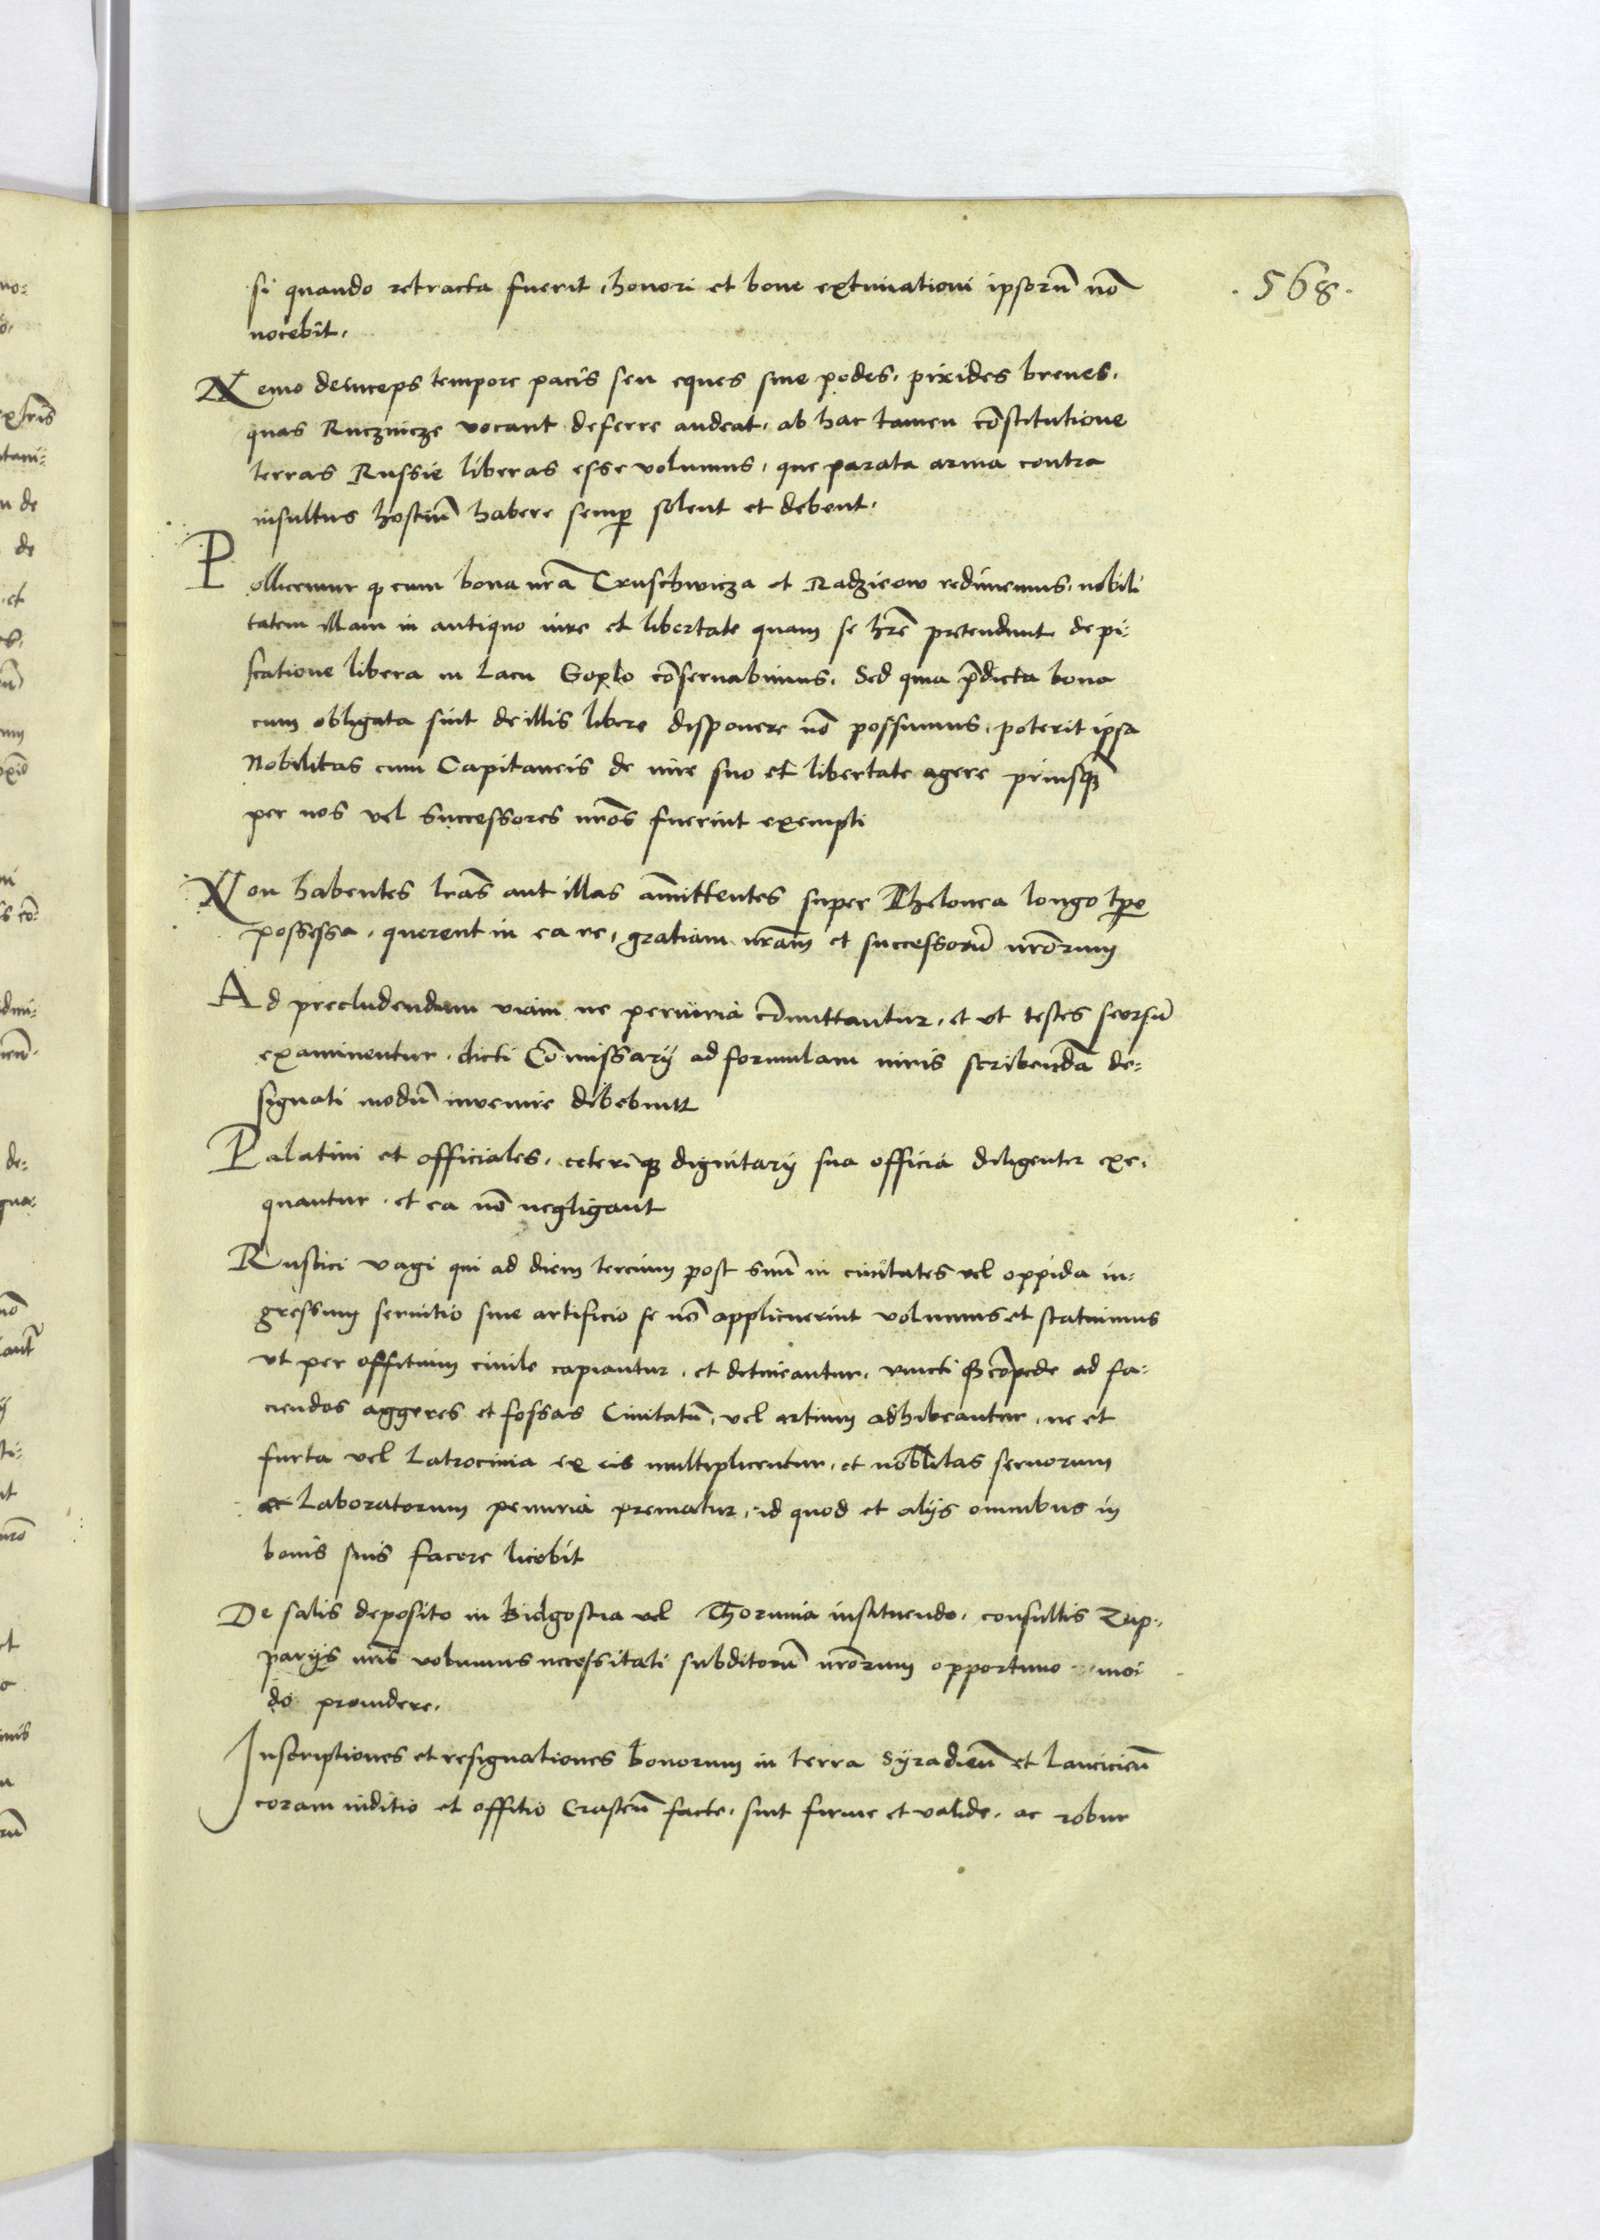 .568.
si quando retracta fuerit, honori et bone extimationi ipsorū nō
nocebit.
Nemo deinceps tempore pacis seu eques siue pedes, pixides breues,
quas Rucznicze vocant deferre audeat, ab hac tamen cōstitutione
terras Russie liberas esse volumus, que parata arma contra
insultus hostiū habere semp solent et debent.
Pollicemur q cum bona nrā Cruschwicza et Radzieow redimemus, nobili
tatem illam in antiquo iure et libertate quam se hrē pretendunt de pi:
scatione libera in Lacu Goplo cōseruabimus, Sed quia p̄dicta bona
cum obligata sint de illis libere disponere nō possumus, poterit ipsa
Nobilitas cum Capitaneis de iure suo et libertate agere priusq̄
per nos vel successores nrōs fuerint exempti
Non habentes lrās aut illas am̄ittentes super Thelonea longo tpe
possessa, querent in ea re, gratiam nrām et successorū nrōrum
Ad precludendum viam ne periuria cōmittantur, et vt testes seorsū
examinentur, dicti Cōmissarij ad formulam iuris scribendā de:
signati modū inuenire debebunt
Palatini et officiales, ceteriq dignitarij sua officia diligenter exe:
quantur, et ea nō negligant
Rustici vagi qui ad diem tercium post suū in ciuitates vel oppida in:
gressum seruitio siue artificio se nō applicuerint volumus et statuimus
vt per offitium ciuile capiantur, et detineantur, vincti cōpede ad fa:
ciendos aggeres et fossas Ciuitatū, vel artium adhibeantur, ne et
furta vel Latrocinia ex eis multiplicentur, et nobilitas seruorum
ac Laboratorum penuria prematur, id quod et alijs omnibus in
bonis suis facere licebit
De salis deposito in Bidgostia vel Thorunia instituendo, consultis Zup:
parijs nrīs volumus necessitati subditorū nrōrum opportuno moi
do prouidere.
Inscriptiones et resignationes bonorum in terra Syradieū et Lancicieū
coram iuditio et offitio Crasteū facte, sint firme et valide, ac robur